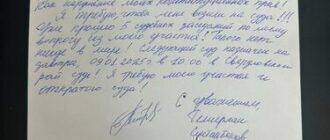 Как нарушение моих конституционных прав!
Я требую, чтоб меня возили на суда!!!
Уже прошло 5 судовых заседаний по моему
вопросу без моего участия! Такого нет
нигде в мире! Следующий суд назначен на
завтра, 09.01.2025 в 10.00 в Свердловский
рай. суд! Я требую моего участия и
открытого суда!
С уважением,
Темирлан